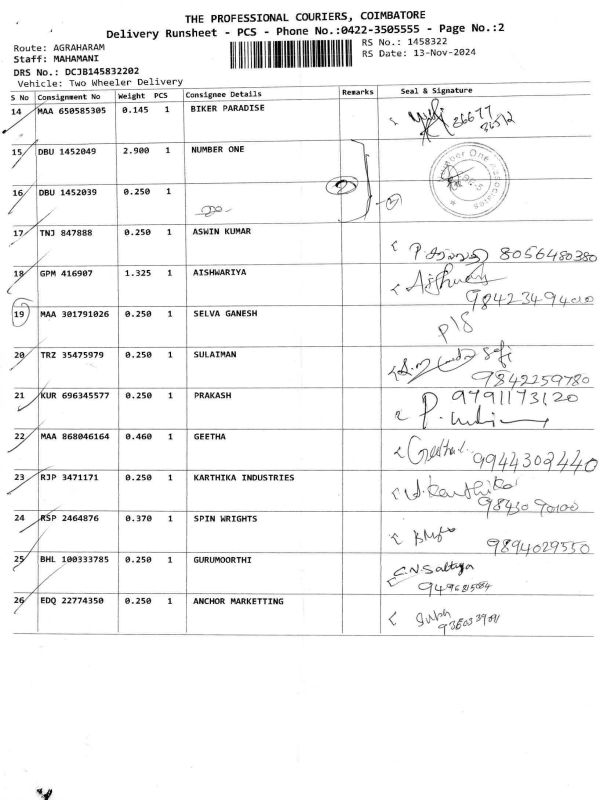 THE PROFESSIONAL COURIERS, COIMBATORE
Delivery Runsheet - PCS - Phone No.:0422-3505555 - Page No.:2
Route: AGRAHARAM
Staff: MAHAMANI
RS No.: 1458322
RS Date: 13-Nov-2024
DRS No.: DCJB145832202
Vehicle: Two Wheeler Delivery
S No Consignment No Weight PCS Consignee Details Remarks Seal & Signature
14 MAA 650585305 0.145 1 BIKER PARADISE
86677
15 DBU 1452049 2.900 1 NUMBER ONE
Number One Associates
16 DBU 1452039 0.250 1
2
17 TNJ 847888 0.250 1 ASWIN KUMAR
8056480380
18 GPM 416907 1.325 1 AISHWARIYA
19 MAA 301791026 0.250 1 SELVA GANESH
P/S
20 TRZ 35475979 0.250 1 SULAIMAN
9842259780
21 KUR 696345577 0.250 1 PRAKASH
9791173120
22 MAA 868046164 0.460 1 GEETHA
Geetha 9944302440
23 RJP 3471171 0.250 1 KARTHIKA INDUSTRIES
Karthika
98430 90100
24 RSP 2464876 0.370 1 SPIN WRIGHTS
9894029550
25 BHL 100333785 0.250 1 GURUMOORTHI
C.N.Sathya
26 EDQ 22774350 0.250 1 ANCHOR MARKETTING